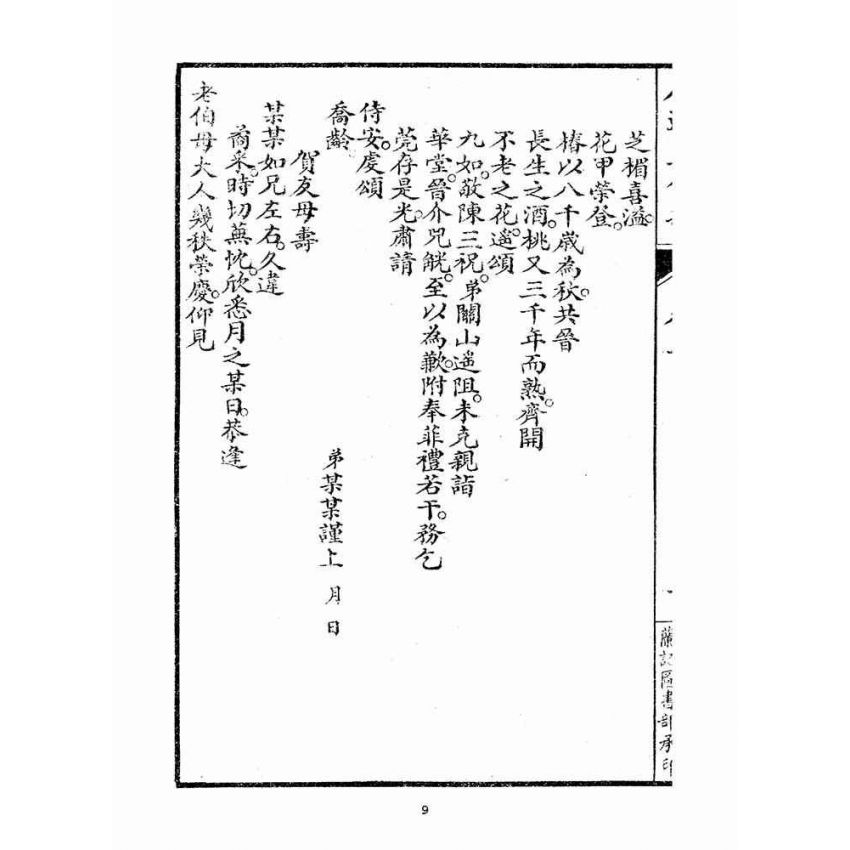 芝楣喜溢。
花甲榮登。
椿以八千歲為秋。共晉
長生之酒。桃又三千年而熟。齊開
不老之花。遙頌
九如。敬陳三祝。弟關山遙阻。未克親詣
華堂。晉介兕觥。至以為歉。附奉菲禮若干。務乞
莞存是光。肅請
侍安。虔頌
喬齡。
弟某某謹上 月 日
賀友母壽
某某如兄左右。久違
喬采。時切蕪忱。欣悉月之某日。恭逢
老伯母大人幾秩榮慶。仰見
9